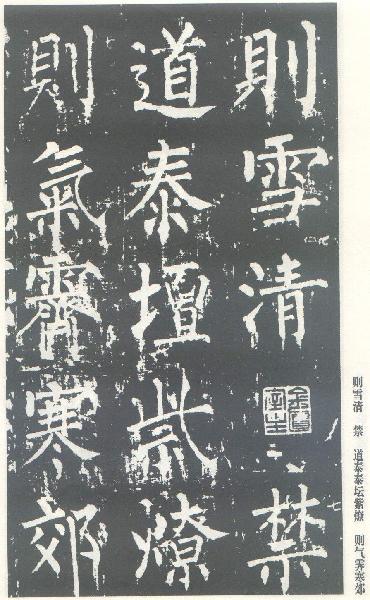 則雪清 禁
道泰壇祡燎
則氣霽寒郊
则雪清 禁 道泰泰坛紫燎 则气霁寒郊